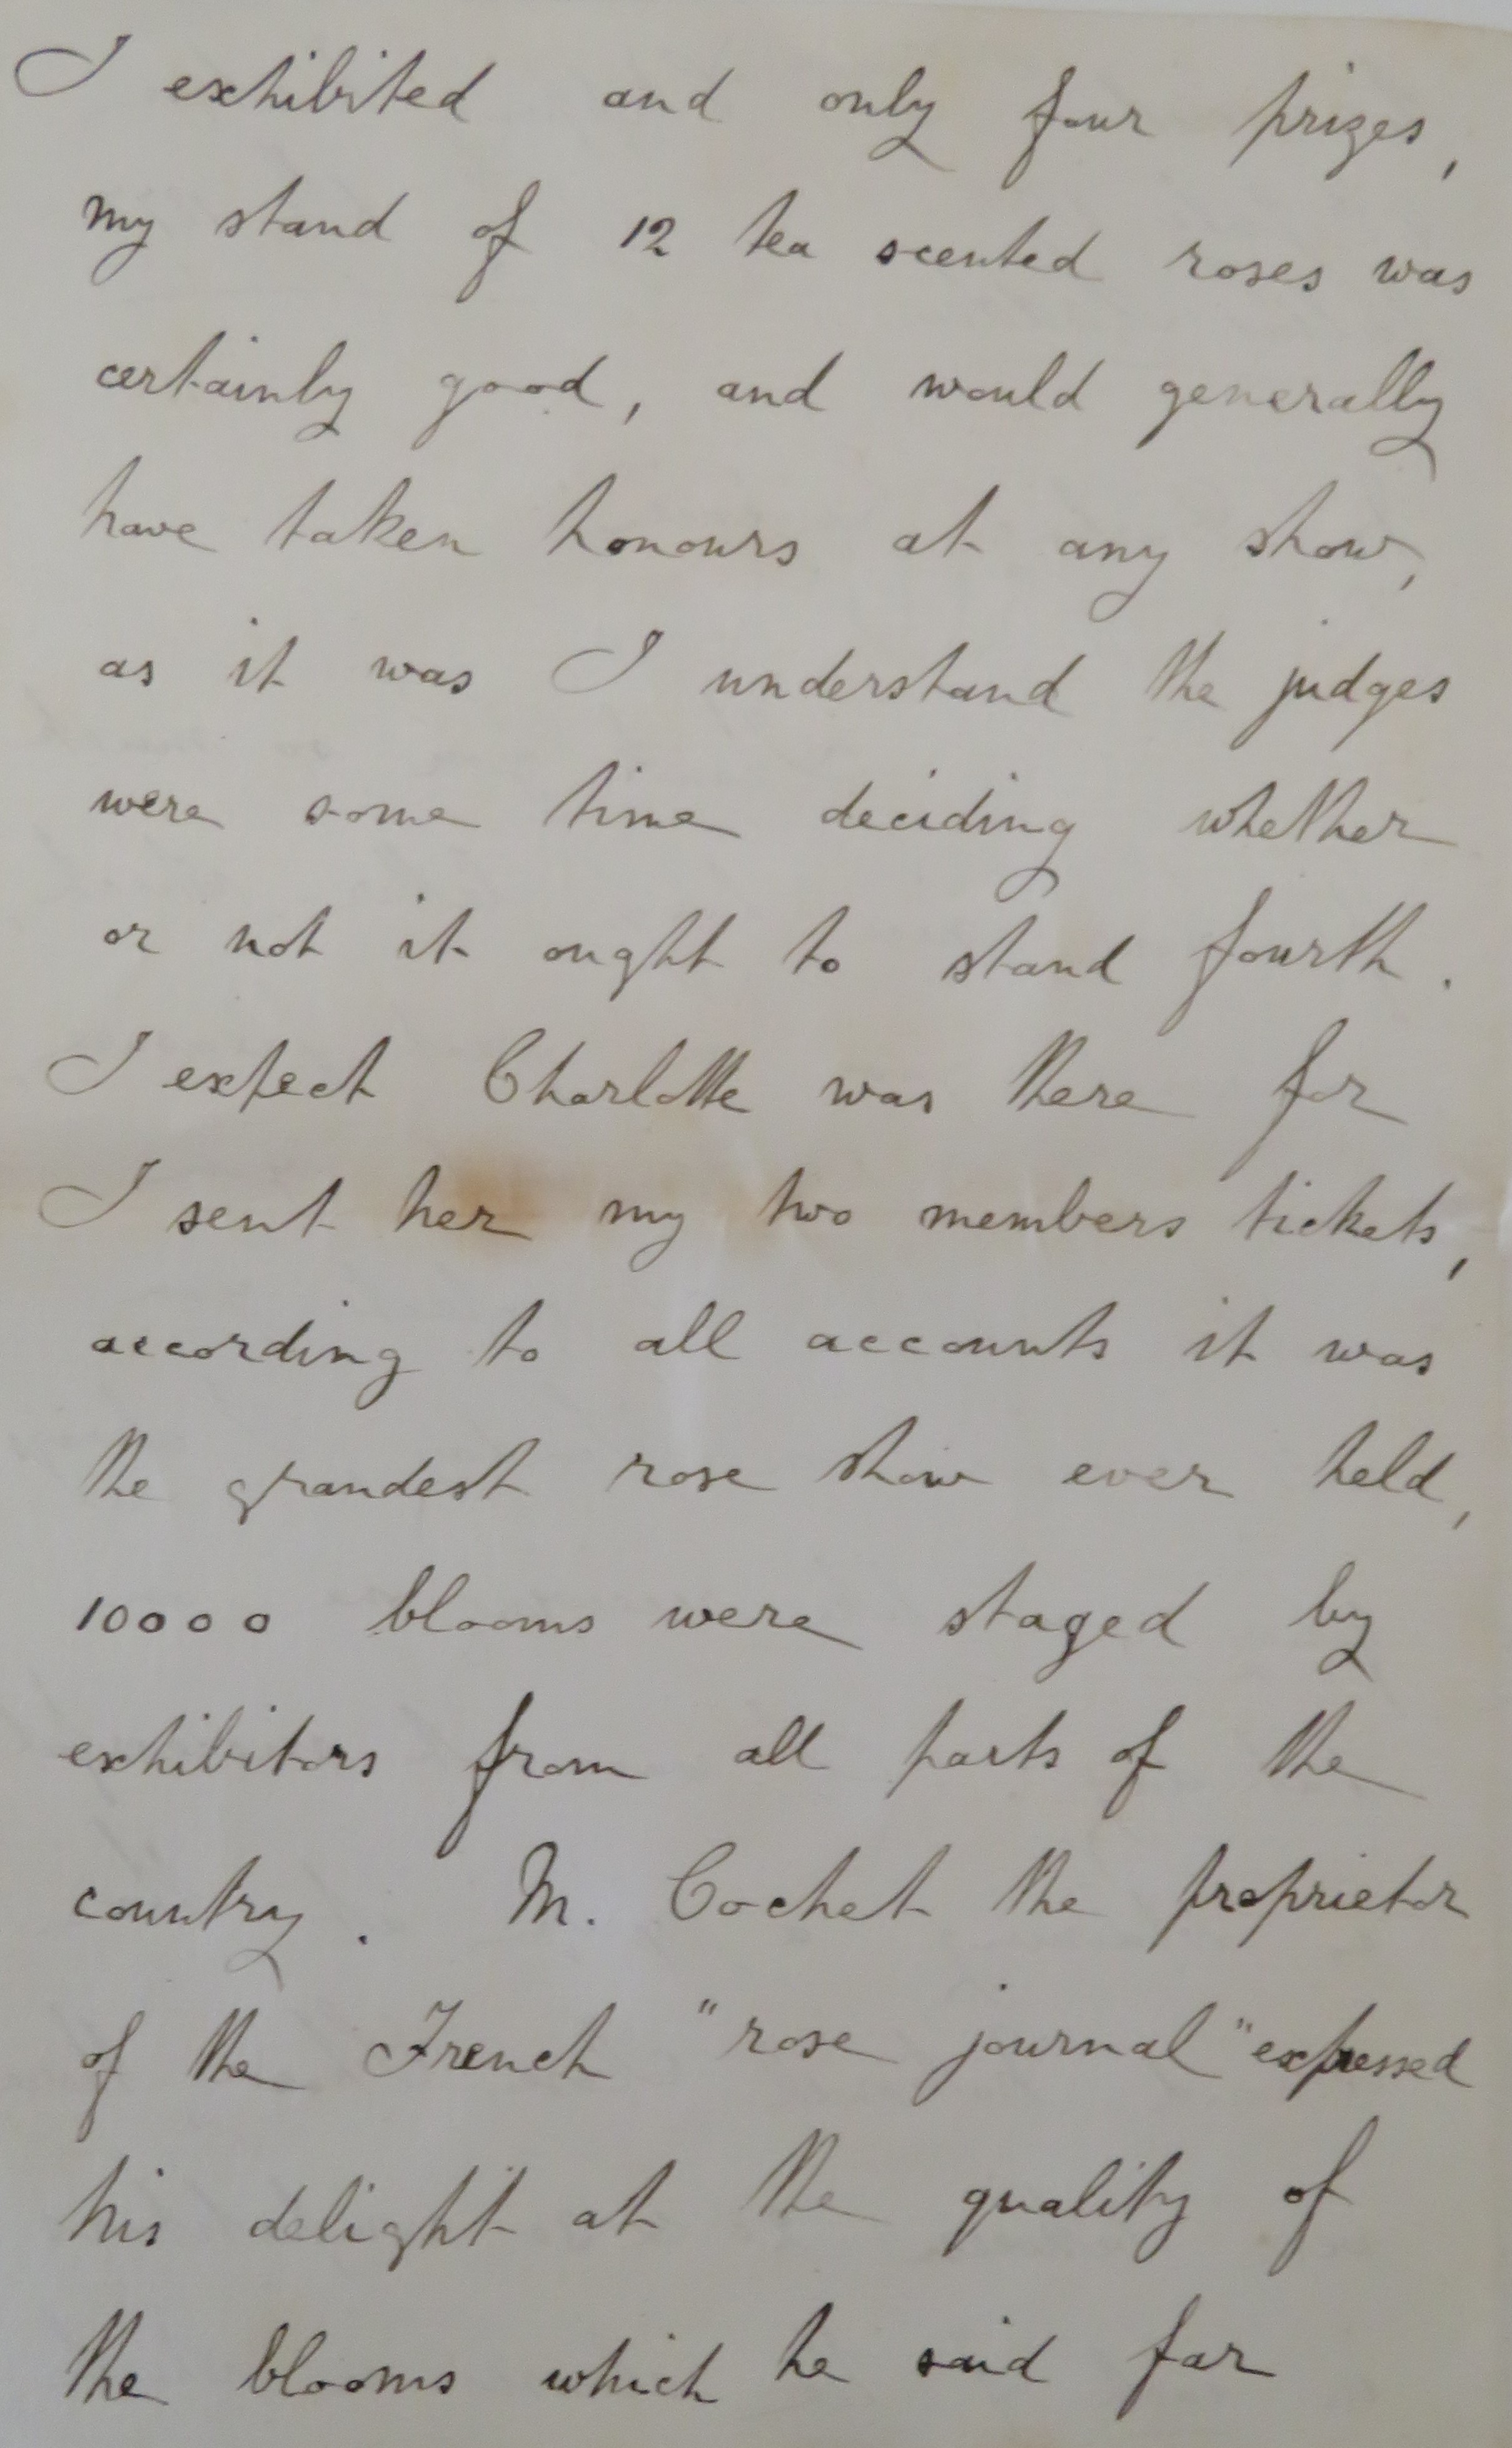 I exhibited and only four prizes,
my stand of 12 tea scented roses was
certainly good, and would generally
have taken honours at any show,
as it was I understand the judges
were some time deciding whether
or not it ought to stand fourth.
I expect Charlotte was there for
I sent her my two members tickets,
according to all accounts it was
the grandest rose show ever held,
10000 blooms were staged by
exhibitors from all parts of the
country. M. Cochet the proprietor
of the French "rose journal" expressed
his delight at the quality of
the blooms which he said far